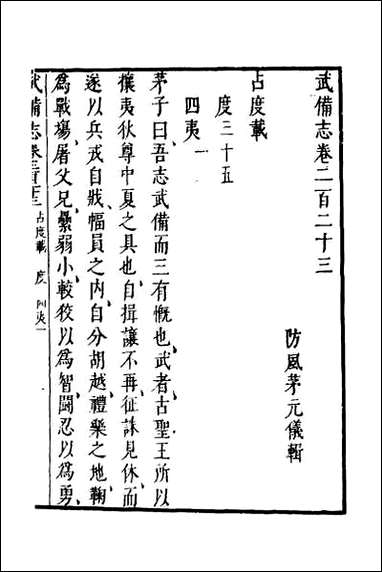 武備志卷二百二十三
防風茅元儀輯
占度載
度三十五
四夷一
茅子曰吾志武備而三有慨也武者古聖王所以
攘夷狄尊中夏之具也自揖讓不再征誅見休而
遂以兵戎自戕幅員之內自分胡越禮樂之地鞠
為戰塲屠父兄纍弱小較狡以為智鬪忍以為勇
武備志卷二百二十三 占度載 度 四夷一